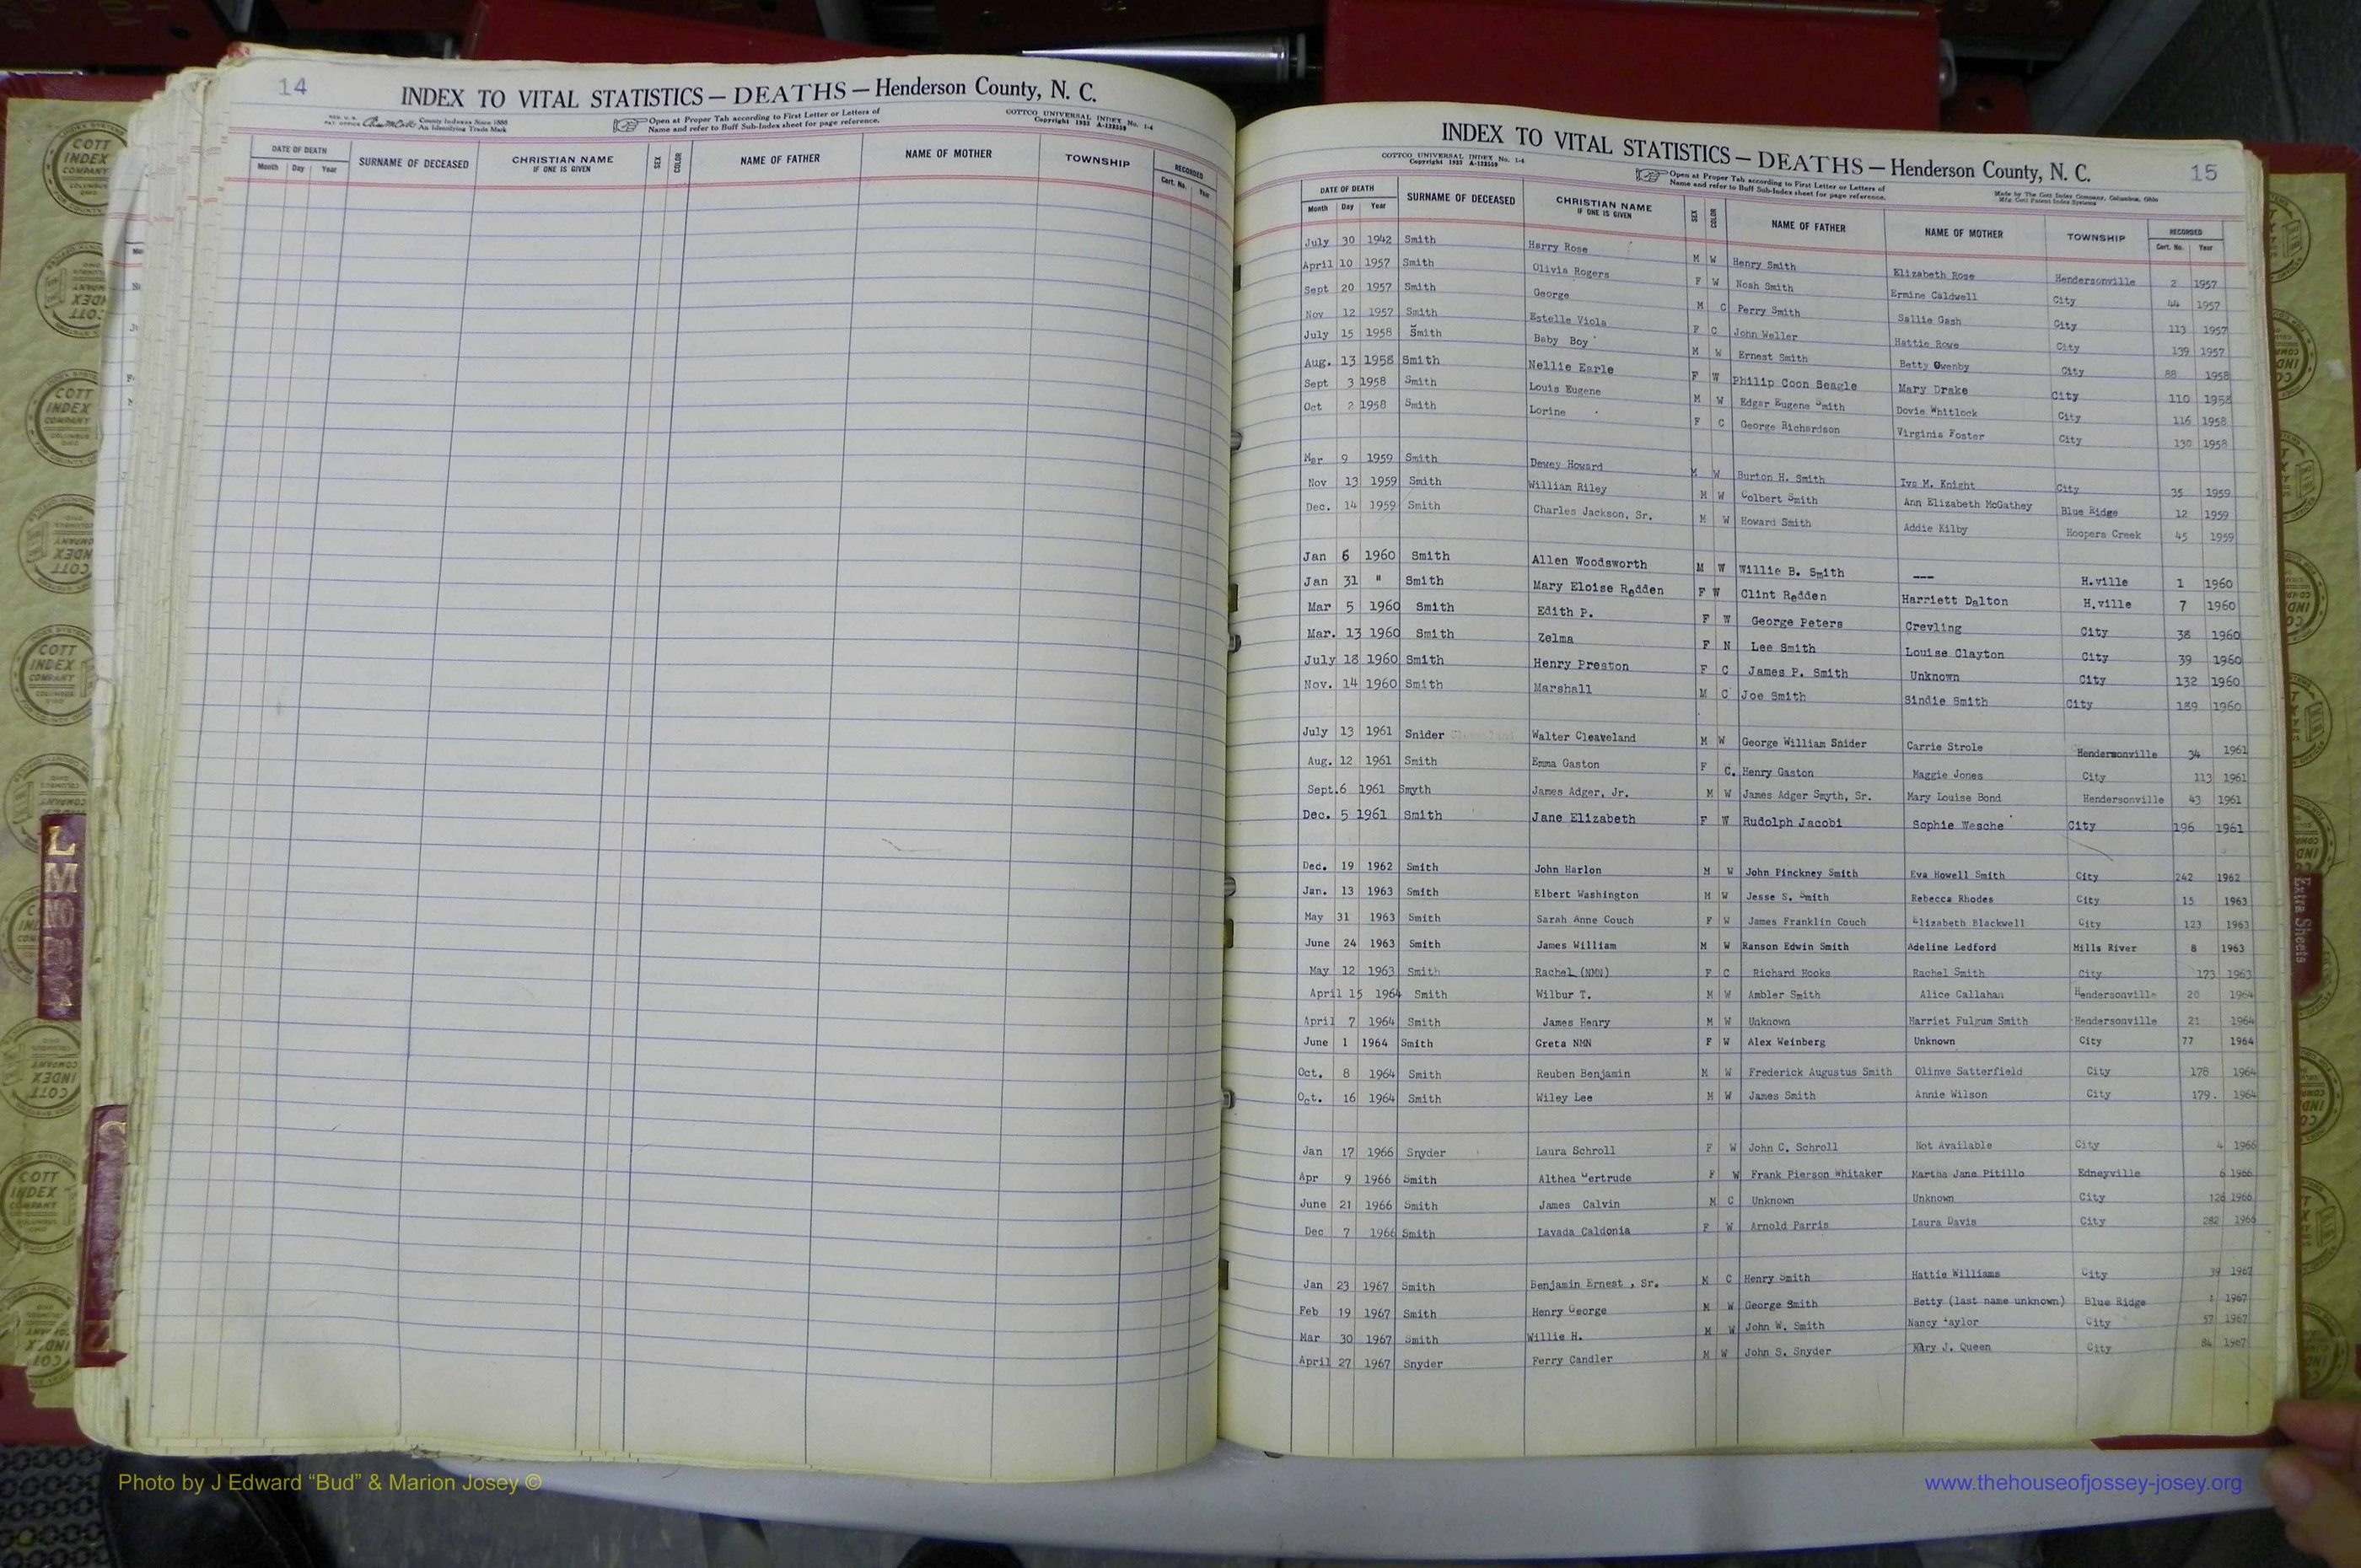 14
INDEX TO VITAL STATISTICS — DEATHS — Henderson County, N. C.
County Indexes Since 1888
An Identifying Trade Mark
Open at Proper Tab according to First Letter or Letters of
Name and refer to Buff Sub-Index sheet for page reference.
COTTCO UNIVERSAL INDEX No. 1-4
DATE OF DEATH
Month Day Year
SURNAME OF DECEASED
CHRISTIAN NAME
IF ONE IS GIVEN
SEX
COLOR
NAME OF FATHER
NAME OF MOTHER
TOWNSHIP
RECORDED
Cert. No. Year
INDEX TO VITAL STATISTICS — DEATHS — Henderson County, N. C.
15
COTTCO UNIVERSAL INDEX No. 1-4
Open at Proper Tab according to First Letter or Letters of
Name and refer to Buff Sub-Index sheet for page reference.
Made by The Cott Index Company, Columbus, Ohio
DATE OF DEATH
Month Day Year
SURNAME OF DECEASED
CHRISTIAN NAME
IF ONE IS GIVEN
SEX
COLOR
NAME OF FATHER
NAME OF MOTHER
TOWNSHIP
RECORDED
Cert. No. Year
July 30 1942 Smith Harry Rose M W Henry Smith Elizabeth Rose Hendersonville 2 1957
April 10 1957 Smith Olivia Rogers F W Noah Smith Ermine Caldwell City 44 1957
Sept 20 1957 Smith George M C Perry Smith Sallie Gash City 113 1957
Nov 12 1957 Smith Estelle Viola F C John Weller Hattie Rowe City 139 1957
July 15 1958 Smith Baby Boy M W Ernest Smith Betty Owenby City 88 1958
Aug. 13 1958 Smith Nellie Earle F W Philip Coon Seagle Mary Drake City 110 1958
Sept 3 1958 Smith Louis Eugene M W Edgar Eugene Smith Dovie Whitlock City 116 1958
Oct 2 1958 Smith Lorine F C George Richardson Virginia Foster City 130 1958
Mar 9 1959 Smith Dewey Howard M W Burton H. Smith Iva M. Knight City 35 1959
Nov 13 1959 Smith William Riley M W Colbert Smith Ann Elizabeth McGathey Blue Ridge 12 1959
Dec. 14 1959 Smith Charles Jackson, Sr. M W Howard Smith Addie Kilby Hoopers Creek 45 1959
Jan 6 1960 Smith Allen Woodsworth M W Willie B. Smith --- H.ville 1 1960
Jan 31 " Smith Mary Eloise Redden F W Clint Redden Harriett Dalton H.ville 7 1960
Mar 5 1960 Smith Edith P. F W George Peters Crevling City 38 1960
Mar. 13 1960 Smith Zelma F N Lee Smith Louise Clayton City 39 1960
July 18 1960 Smith Henry Preston F C James P. Smith Unknown City 132 1960
Nov. 14 1960 Smith Marshall M C Joe Smith Sindie Smith City 189 1960
July 13 1961 Snider Walter Cleaveland M W George William Snider Carrie Strole Hendersonville 34 1961
Aug. 12 1961 Smith Emma Gaston F C. Henry Gaston Maggie Jones City 113 1961
Sept.6 1961 Smyth James Adger, Jr. M W James Adger Smyth, Sr. Mary Louise Bond Hendersonville 43 1961
Dec. 5 1961 Smith Jane Elizabeth F W Rudolph Jacobi Sophie Wesche City 196 1961
Dec. 19 1962 Smith John Harlon M W John Pinckney Smith Eva Howell Smith City 242 1962
Jan. 13 1963 Smith Elbert Washington M W Jesse S. Smith Rebecca Rhodes City 15 1963
May 31 1963 Smith Sarah Anne Couch F W James Franklin Couch Elizabeth Blackwell City 123 1963
June 24 1963 Smith James William M W Ranson Edwin Smith Adeline Ledford Mills River 8 1963
May 12 1963 Smith Rachel (NMN) F C Richard Hooks Rachel Smith City 173 1963
April 15 1964 Smith Wilbur T. M W Ambler Smith Alice Callahan Hendersonville 20 1964
April 7 1964 Smith James Henry M W Unknown Harriet Fulgum Smith Hendersonville 21 1964
June 1 1964 Smith Greta NMN F W Alex Weinberg Unknown City 77 1964
Oct. 8 1964 Smith Reuben Benjamin M W Frederick Augustus Smith Olinve Satterfield City 178 1964
Oct. 16 1964 Smith Wiley Lee M W James Smith Annie Wilson City 179. 1964
Jan 17 1966 Snyder Laura Schroll F W John C. Schroll Not Available City 4 1966
Apr 9 1966 Smith Althea Gertrude F W Frank Pierson Whitaker Martha Jane Pitillo Edneyville 6 1966
June 21 1966 Smith James Calvin M C Unknown Unknown City 126 1966
Dec 7 1966 Smith Lavada Caldonia F W Arnold Parris Laura Davis City 282 1966
Jan 23 1967 Smith Benjamin Ernest , Sr. M C Henry Smith Hattie Williams City 39 1967
Feb 19 1967 Smith Henry George M W George Smith Betty (last name unknown) Blue Ridge 1967
Mar 30 1967 Smith Willie H. M W John W. Smith Nancy Taylor City 57 1967
April 27 1967 Snyder Ferry Candler M W John S. Snyder Mary J. Queen City 84 1967
COTT INDEX COMPANY COLUMBUS OHIO
L
M
Extra Sheets
Photo by J Edward “Bud” & Marion Josey ©
www.thehouseofjossey-josey.org